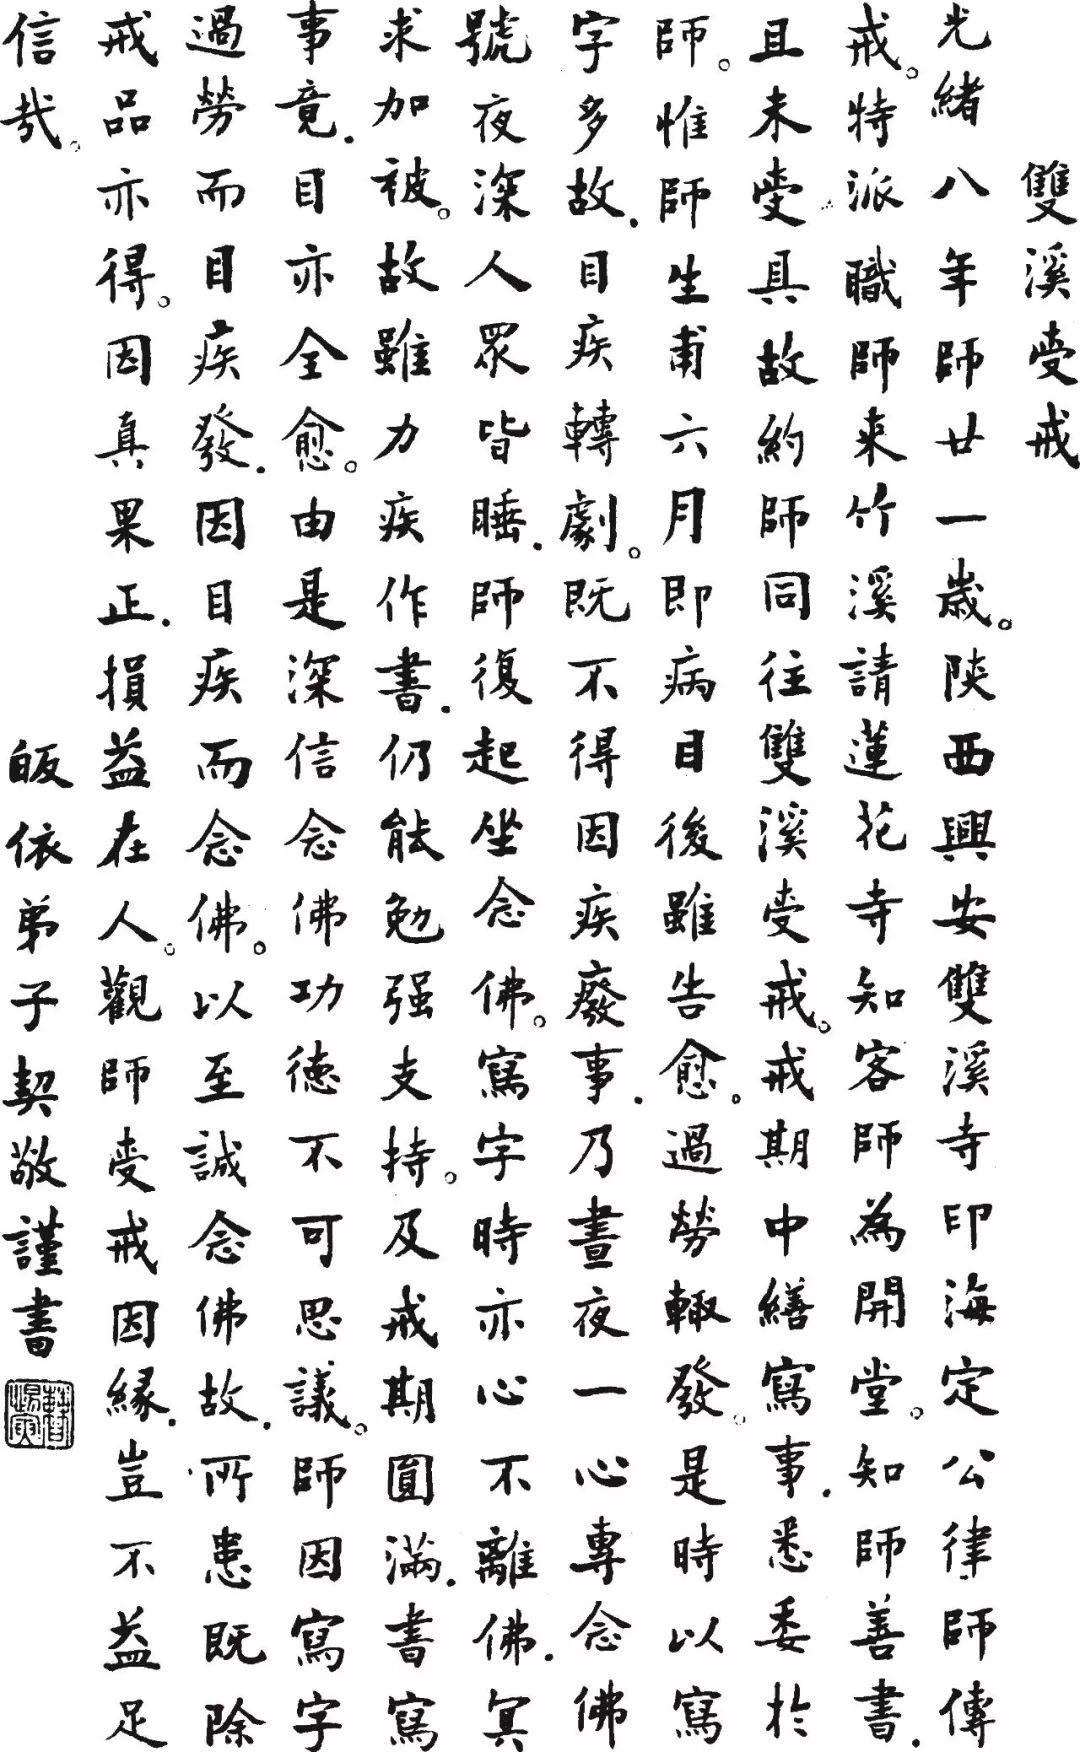 雙溪受戒
光緒八年師廿一歲。陝西興安雙溪寺印海定公律師傳
戒。特派職師來竹溪請蓮花寺知客師為開堂。知師善書.
且未受具故約師同往雙溪受戒。戒期中繕寫事.悉委於
師。惟師生甫六月即病目後雖告愈。過勞輙發。是時以寫
字多故.目疾轉劇。既不得因疾廢事.乃晝夜一心專念佛
號夜深人眾皆睡.師復起坐念佛。寫字時亦心不離佛.冥
求加被。故雖力疾作書.仍能勉强支持。及戒期圓滿.書寫
事竟.目亦全愈。由是深信念佛功德不可思議。師因寫字
過勞而目疾發.因目疾而念佛。以至誠念佛故.所患既除
戒品亦得。因真果正.損益在人。觀師受戒因緣.豈不益足
信哉。
皈依弟子契敬謹書